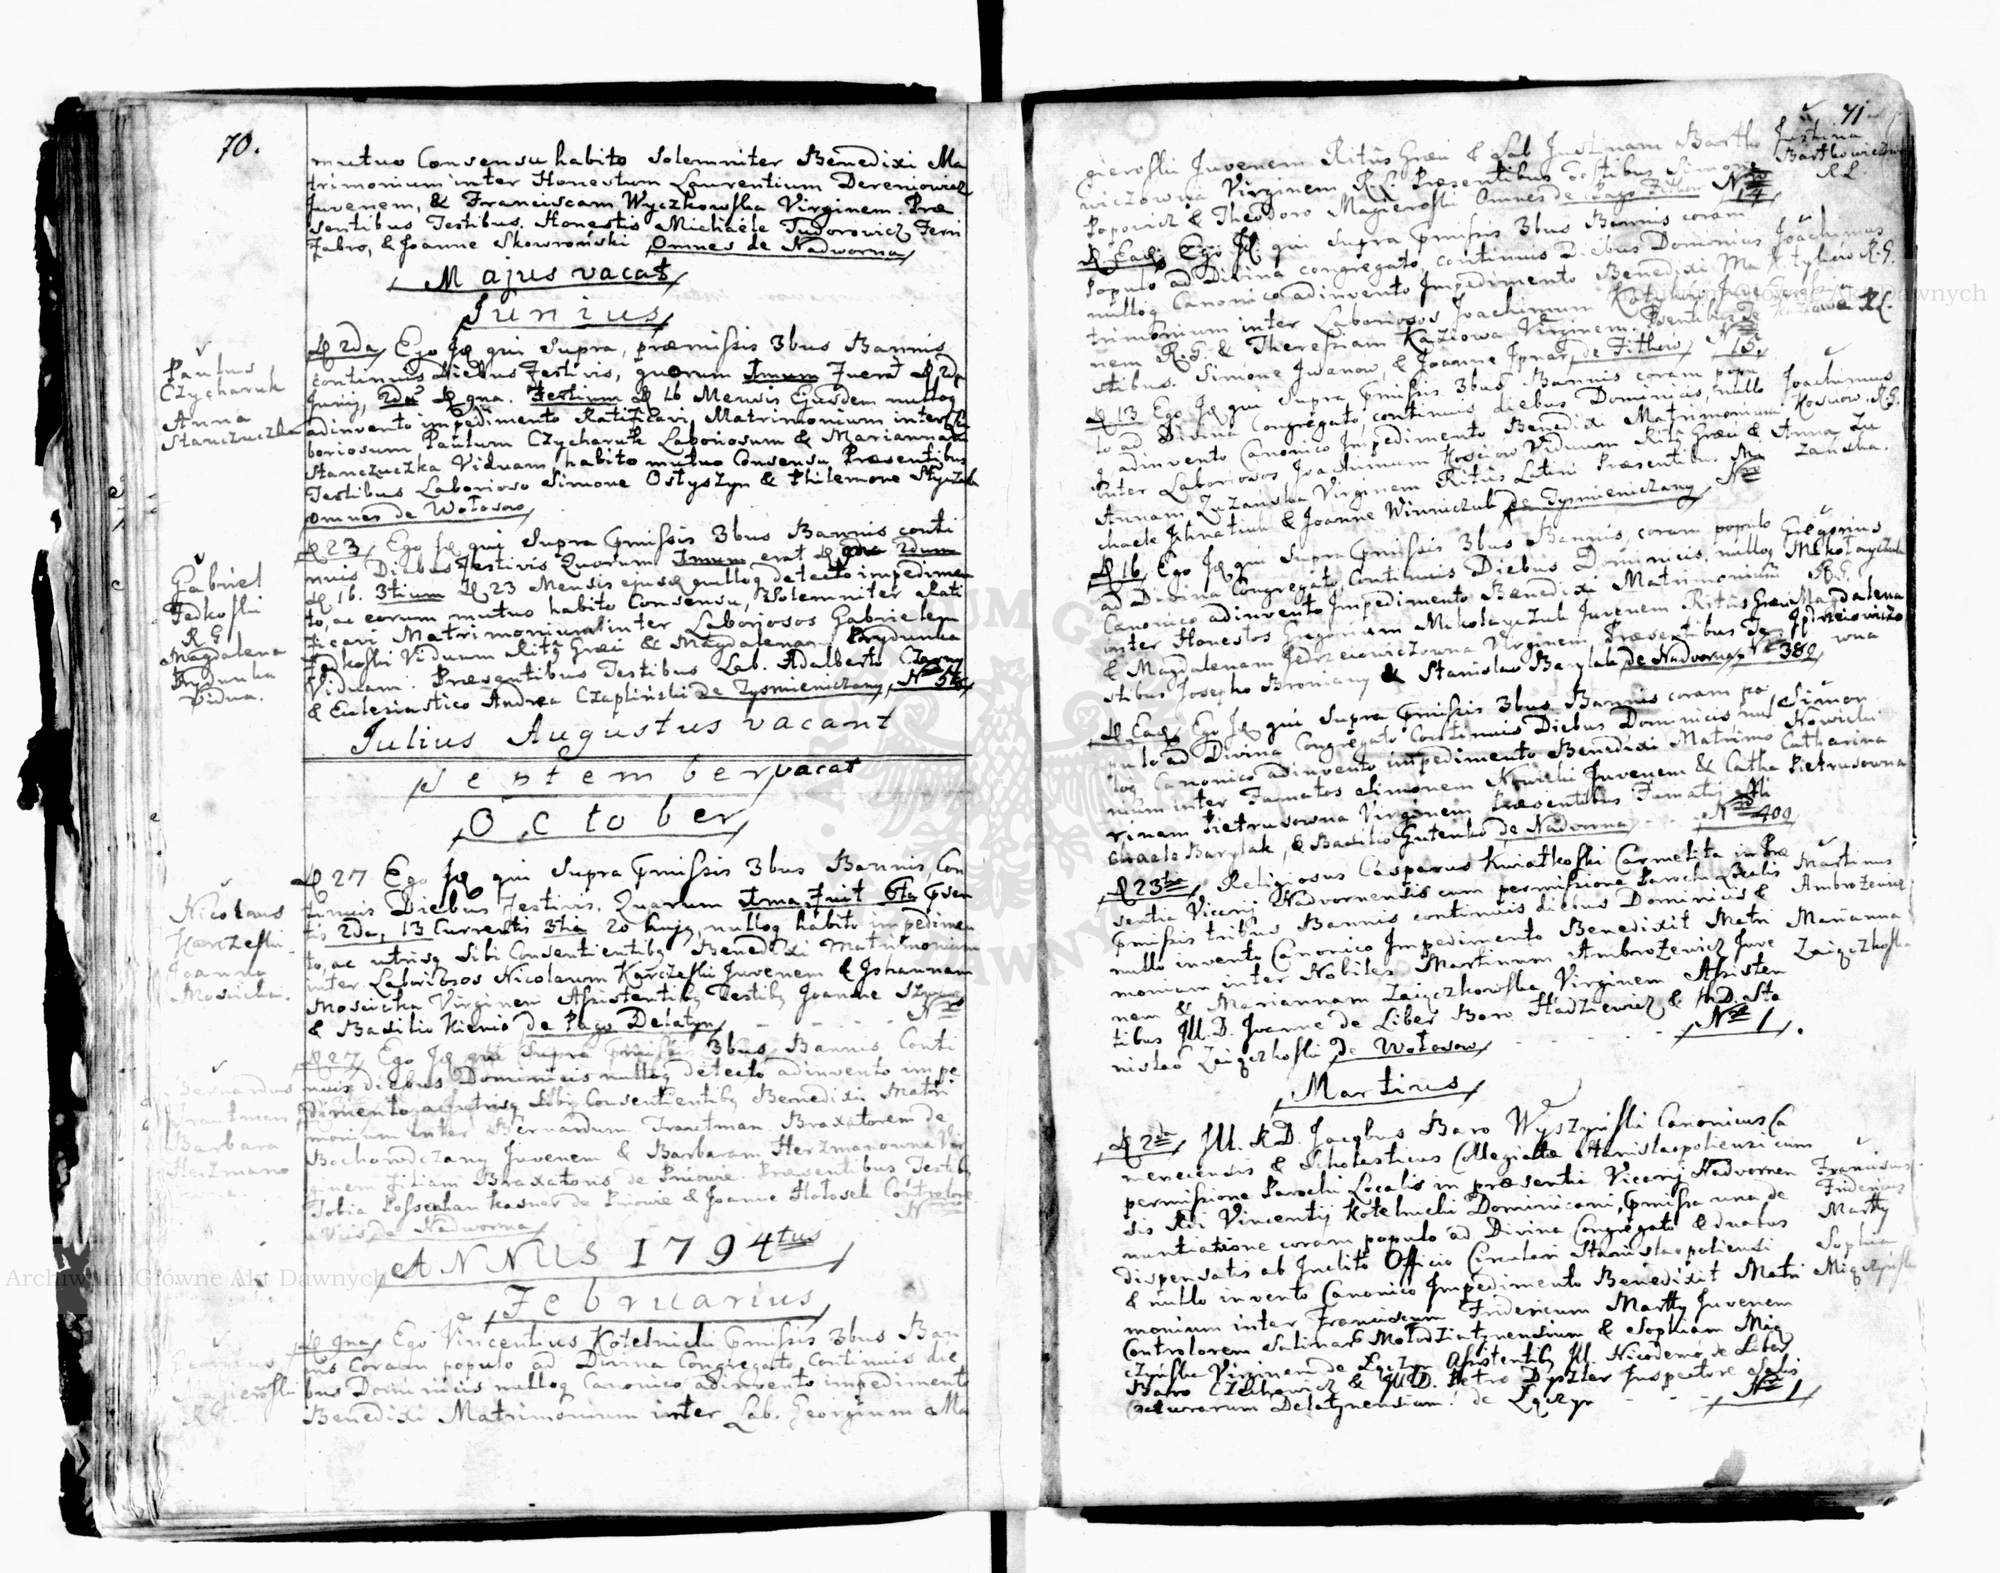 70.
mutuo Consensu habito Solemniter Benedixi Ma
trimonium inter Honestum Laurentium Dereniowicz
Juvenem, & Franciscam Wyczkowska Virginem. Præ
sentibus Testibus. Honestis Michaele Tudorowicz Ferri
Fabro, & Joanne Skowroński Omnes de Nadworna
Majus vacat
Junius
Paulus
Czycharuk
Anna
Stanczuczka
D 2da Ego Id qui Supra, præmissis 3bus Bannis
continuis Diebus Festivis, quorum 1mum Fuerat D 2da
Junij, 2dum D 9na. Tertium D 16 Mensis Ejusdem nulloq
adinvento impedimento Ratificavi Matrimonium inter La
boriosum, Paulum Czycharuk Laboriosum & Mariannam
Stanczuczka Viduam, habito mutuo Consensu Præsentibus
Testibus Laborioso Simone Ostyszyn & Philemone
Omnes de Wołosow
Gabriel
Fedkoski
R G
Magdalena
Prydunka
Vidua.
D 23 Ego Id qui Supra Præmissis 3bus Bannis conti
nuis Diebus Festivis Quorum 1mum erat D 9na 2dum
D 16. 3tium D 23 Mensis ejusd nulloq detecto impedimen
to, ac eorum mutuo habito Consensu, Solemniter Rati
ficavi Matrimonium inter Laboriosos Gabrielem
Fedkoski Viduum Ritus Græci & Magdalenam Prydunka
Viduam. Præsentibus Testibus Lab. Adalberto
& Ecclesiastico Andrea Czapliński de Tysmieniczany, Nro 56
Julius Augustus vacant
September vacat
October
Nicolaus
Karczeski
Joanna
Mosiicka.
D 27 Ego Id qui Supra Præmissis 3bus Bannis, Con
tinuis Diebus Festivis, Quorum 1ma Fuit 6ta Præsen
tis 2da, 13 Currentis 3tia 20 hujq, nulloq habito impedimen
to, ac utrisq Sibi Consentientibq Benedixi Matrimonium
inter Laboriosos Nicolaum Karczeski Juvenem & Johannam
Mosiicka Virginem Assistentibq Testibq Joanne
& Basilio Kienio de Pago Delatyn Nro
Bernardus
Trautman
Barbara
Herzmano
D 27 Ego Id qui Supra Præmissis 3bus Bannis Conti
nuis diebus Dominicis nulloq detecto adinvento impe
dimento ac utrisq Sibi Consentientibq Benedixi Matri
monium inter Bernardum Trautman Braxatorem de
Bochorodczany Juvenem & Barbaram Herzmanowna Vir
ginem Filiam Braxatoris de Pniowie. Præsentibus Testibq
Tobia de Pniowie & Joanne Hołosek Controlore
de Nadworna Nro
ANNUS 1794tus
Februarius
Georgius
Magieroski
R G.
D 9na Ego Vincentius Kotelnicki Præmissis 3bus Ban
nis Coram populo ad Divina Congregato, Continuis die
bus Dominicis nulloq Canonico adinvento impedimento
Benedixi Matrimonium inter Lab. Georgium Ma
71
gieroski Juvenem Ritûs Græci & Lab Justinam Bartko
wiczowna Virginem R.L. Præsentibus Testibus Simone
Popowicz & Theodoro Magieroski Omnes de Pago Fitkow Nro 14
Justina
Bartkowiczowna
R.L.
D Ead. Ego Id qui Supra Præmissis 3bus Bannis coram
Populo ad Divina congregato, continuis Diebus Dominicis
nulloq Canonico adinvento Impedimento Benedixi Ma
trimonium inter Laboriosos Joachimum
nem R.G. & Theressiam Kaziowa Virginem. Præsentibus Te
stibus. Simone Iwanow, & Joanne Ipnar de Fitkow Nro 15.
Joachimus
R.G.
R.L.
D 13 Ego Id qui Supra, Præmissis 3bus Bannis coram popu
lo ad Divina Congregato, continuis diebus Dominicis, nullo
q adinvento Canonico Impedimento Benedixi Matrimonium
inter Laboriosos Joachimum Kosciow Viduum Ritûs Græci &
Annam Zuzańska Virginem Ritûs Latini Præsentibus. Mi
chaele Ihnatiuk & Joanne Winniczuk de Tysmieniczany Nro
Joachimus
Kosciow R.G.
Anna Zu
zańska.
D 16 Ego Id qui Supra Præmissis 3bus Bannis, coram populo
ad Divina Congregato Continuis Diebus Dominicis, nulloq
Canonico adinvento Impedimento Benedixi Matrimonium
inter Honestos Gregorium Mikołayczuk Juvenem Ritûs Græci
& Magdalenam Jędrzeiewiczowna Virginem, Præsentibus Te
stibus Josepho Broniany & Stanislao Barylak de Nadworna, Nro 389
Gregorius
Mikołayczuk
R.G.
Magdalena
Jędrzeiowiczo
wna
D Ead. Ego Id qui Supra Præmissis 3bus Bannis coram po
pulo ad Divina Congregato Continuis Diebus Dominicis nul
loq Canonico adinvento impedimento Benedixi Matrimo
nium inter Famatos Simonem Nowicki Juvenem & Catha
rinam Pietrusowna Virginem Præsentibus Famatis Mi
chaele Barylak, & Basilio Gutenko de Nadworna Nro 409
Simon
Nowicki
Catharina
Pietrusowna
D 23tia Religiosus Casparus Kwiatkoski Carmelita in Præ
sentia Vicarij Nadvornensis cum permissione Parochi Localis
Præmissis tribus Bannis continuis diebus Dominicis &
nullo invento Canonico Impedimento Benedixit Matri
monium inter Nobiles Martinum Ambrożewicz Juve
nem & Mariannam Zaiączkowska Virginem Assisten
tibus Ill. D. Joanne de Liber Baro Hadziewicz & M.D. Sta
nislao Zaiączkoski de Wołosow Nro 1.
Martinus
Ambrożewicz
Marianna
Zaiączkoska
Martius
D 2da Ill. R.D. Jacobus Baro Wyszyński Canonicus Ca
menecensis & Scholasticus Collegiatæ Stanislaopoliensi cum
permissione Parochi Localis in præsentia Vicarij Nadvornen
sis Rdi Vincentij Kotelnicki Dominicani, Præmissa una de
nuntiatione coram populo ad Divina Congregato & duabus
dispensatis ab Inclito Officio Circulari Stanislaopoliensi
& nullo invento Canonico Impedimento Benedixit Matri
monium inter Franciscum Fridericum Martty Juvenem
Controlorem Salinar Mołodziatynensium & Sophiam Mią
czyńska Virginem de Łączyn Assistentibq Ill. Nicodemo de Liber
Baro Czechowicz & M.D. Petro Dyszler Inspectore Salis
Delatynensium. de Łączyn Nro 1
Franciscus
Fridericus
Martty
Sophia
Miączyńska
Archiwum Główne Akt Dawnych
Archiwum Główne Akt Dawnych